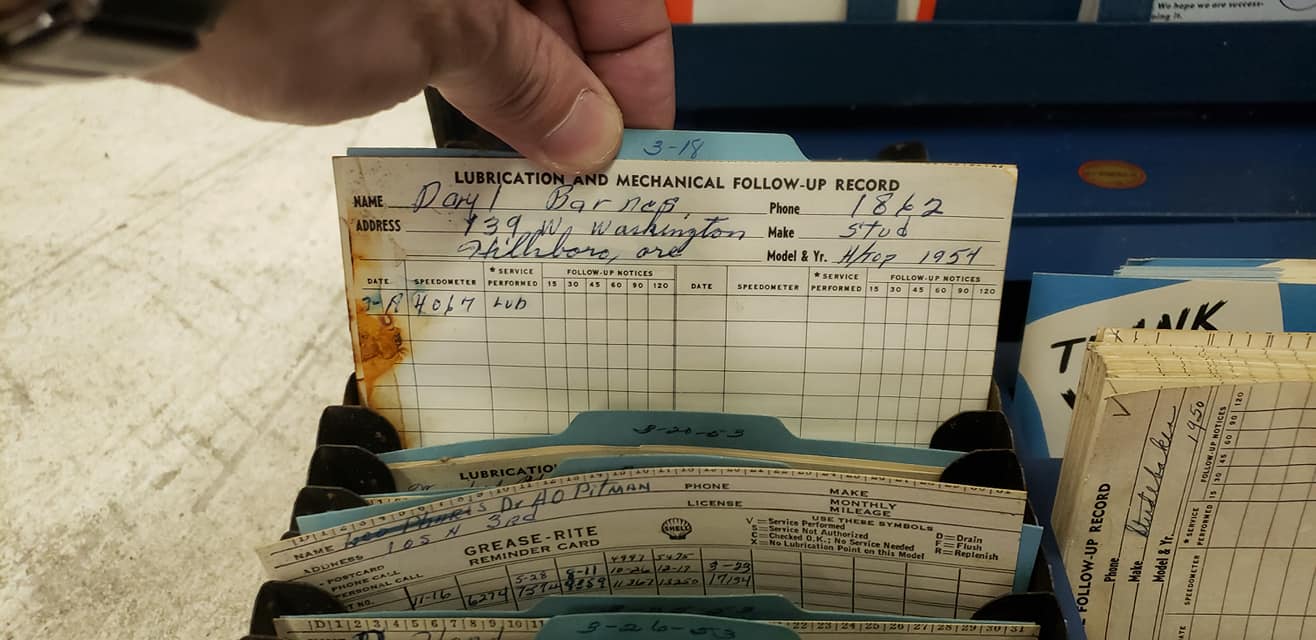 We hope we are success-
ing it.
3-18
LUBRICATION AND MECHANICAL FOLLOW-UP RECORD
NAME Daryl Barnes Phone 1862
ADDRESS 139 W. Washington Make Stud
Hillsboro, ore Model & Yr. H/top 1954
DATE SPEEDOMETER * SERVICE PERFORMED FOLLOW-UP NOTICES 15 30 45 60 90 120 DATE SPEEDOMETER * SERVICE PERFORMED FOLLOW-UP NOTICES 15 30 45 60 90 120
4067 LUB
3-20-53
LUBRICATIO
NAME Dr A O Pitman PHONE MAKE
ADDRESS 105 N 3rd LICENSE MONTHLY MILEAGE
GREASE-RITE
REMINDER CARD
SHELL
USE THESE SYMBOLS
V=Service Performed D=Drain
S=Service Not Authorized F=Flush
C=Checked O.K.; No Service Needed R=Replenish
X=No Lubrication Point on this Model
POSTCARD
PHONE CALL
PERSONAL CALL
4997 5475
5-28 8-11 10-26 12-17 3-23
11-16 6274 7594 9359 11367 13250 17194
3-26-53
D 1 2 3 4 5 6 7 8 9 10 11
22 23 24 25 26 27 28 29 30 31
THANK
FOLLOW-UP RECORD
Phone
Make Studebaker
Model & Yr. 1950
SPEEDOMETER * SERVICE PERFORMED FOLLOW-UP NOTICES 15 30 45 60 90 120